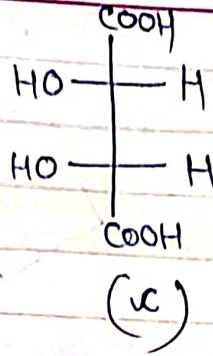 COOH
HO H
HO H
COOH
(x)